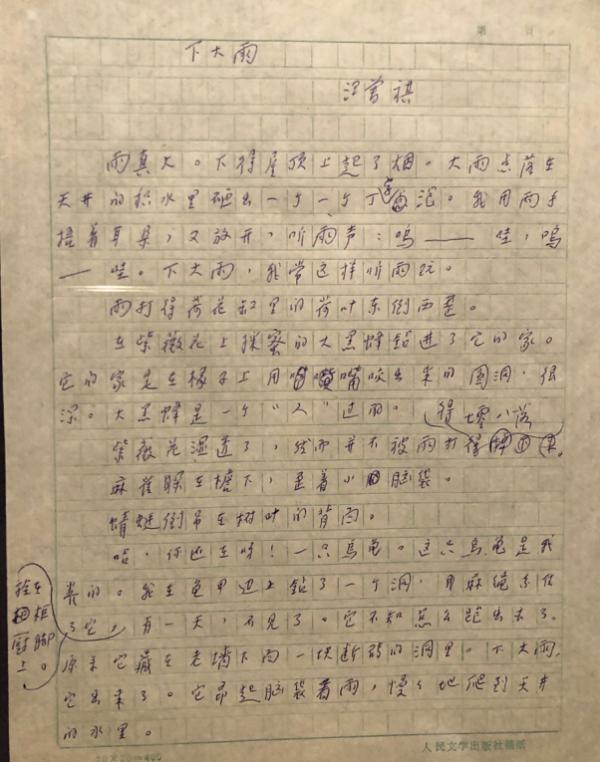 下大雨
汪曾祺
雨真大。下得屋顶上起了烟。大雨点落在
天井的积水里砸出一个一个丁字泡。我用两手
捂着耳朵，又放开，听雨声：呜——哇，呜
——哇。下大雨，我常这样听雨玩。
雨打得荷花缸里的荷叶东倒西歪。
在紫薇花上采蜜的大黑蜂钻进了它的家。
它的家是在椽子上用嘴咬出来的圆洞，很
深。大黑蜂是一个“人”过的。
紫薇花湿透了，然而并不被雨打得
得零八落
麻雀躲在檐下，歪着小脑袋。
蜻蜓倒吊在树叶的背面。
哈，你还在呀！一只乌龟。这只乌龟是我
养的。我在龟甲边上钻了一个洞，用麻绳系住
了它，
拴在
柜橱脚
上。
有一天，不见了。它不知怎么跑出去了。
原来它藏在老墙下面一块断砖的洞里。下大雨，
它出来了。它昂起脑袋看雨，慢慢地爬到天井
的水里。
20×20=400
人民文学出版社稿纸
第 页